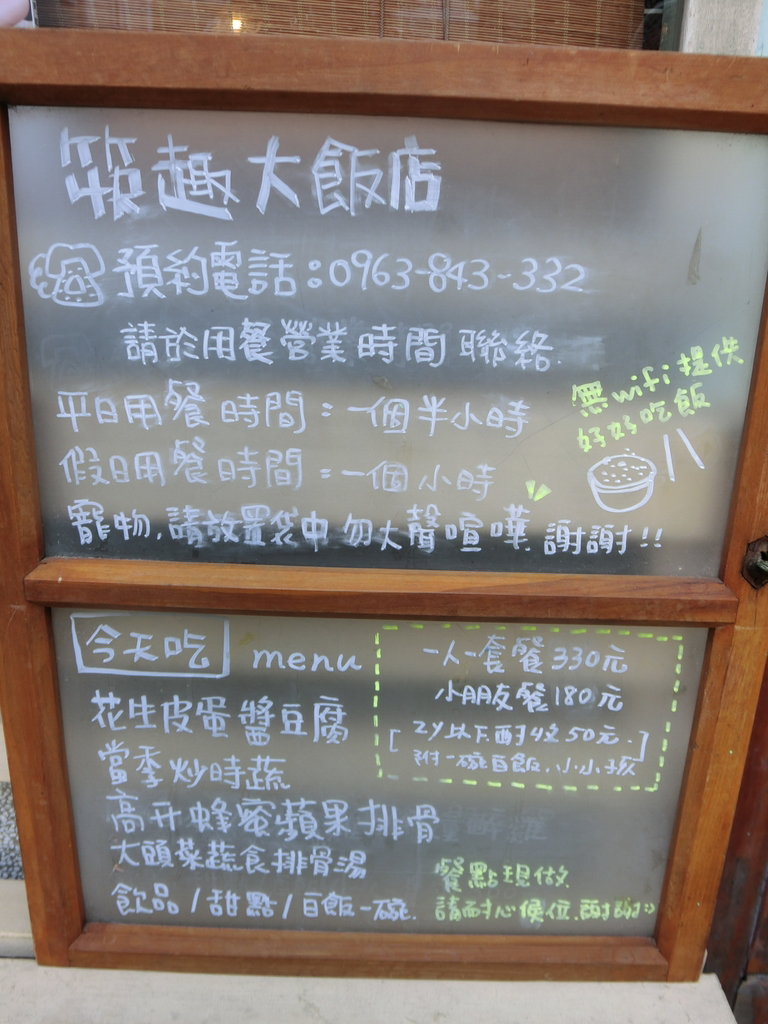 筷趣大飯店
預約電話:0963-843-332
請於用餐營業時間聯絡.
平日用餐時間:一個半小時
假日用餐時間:一個小時
無wifi提供
好好吃飯
寵物,請放置袋中勿大聲喧嘩.謝謝!!
今天吃 menu
花生皮蛋醬豆腐
當季炒時蔬
高升蜂蜜蘋果排骨
大頭菜蔬食排骨湯
飲品/甜點/白飯一碗.
一人一套餐330元
小朋友餐180元
[2Y以下酌收50元.]
附一碗白飯.小小孩
餐點現做.
請耐心候位.謝謝:)